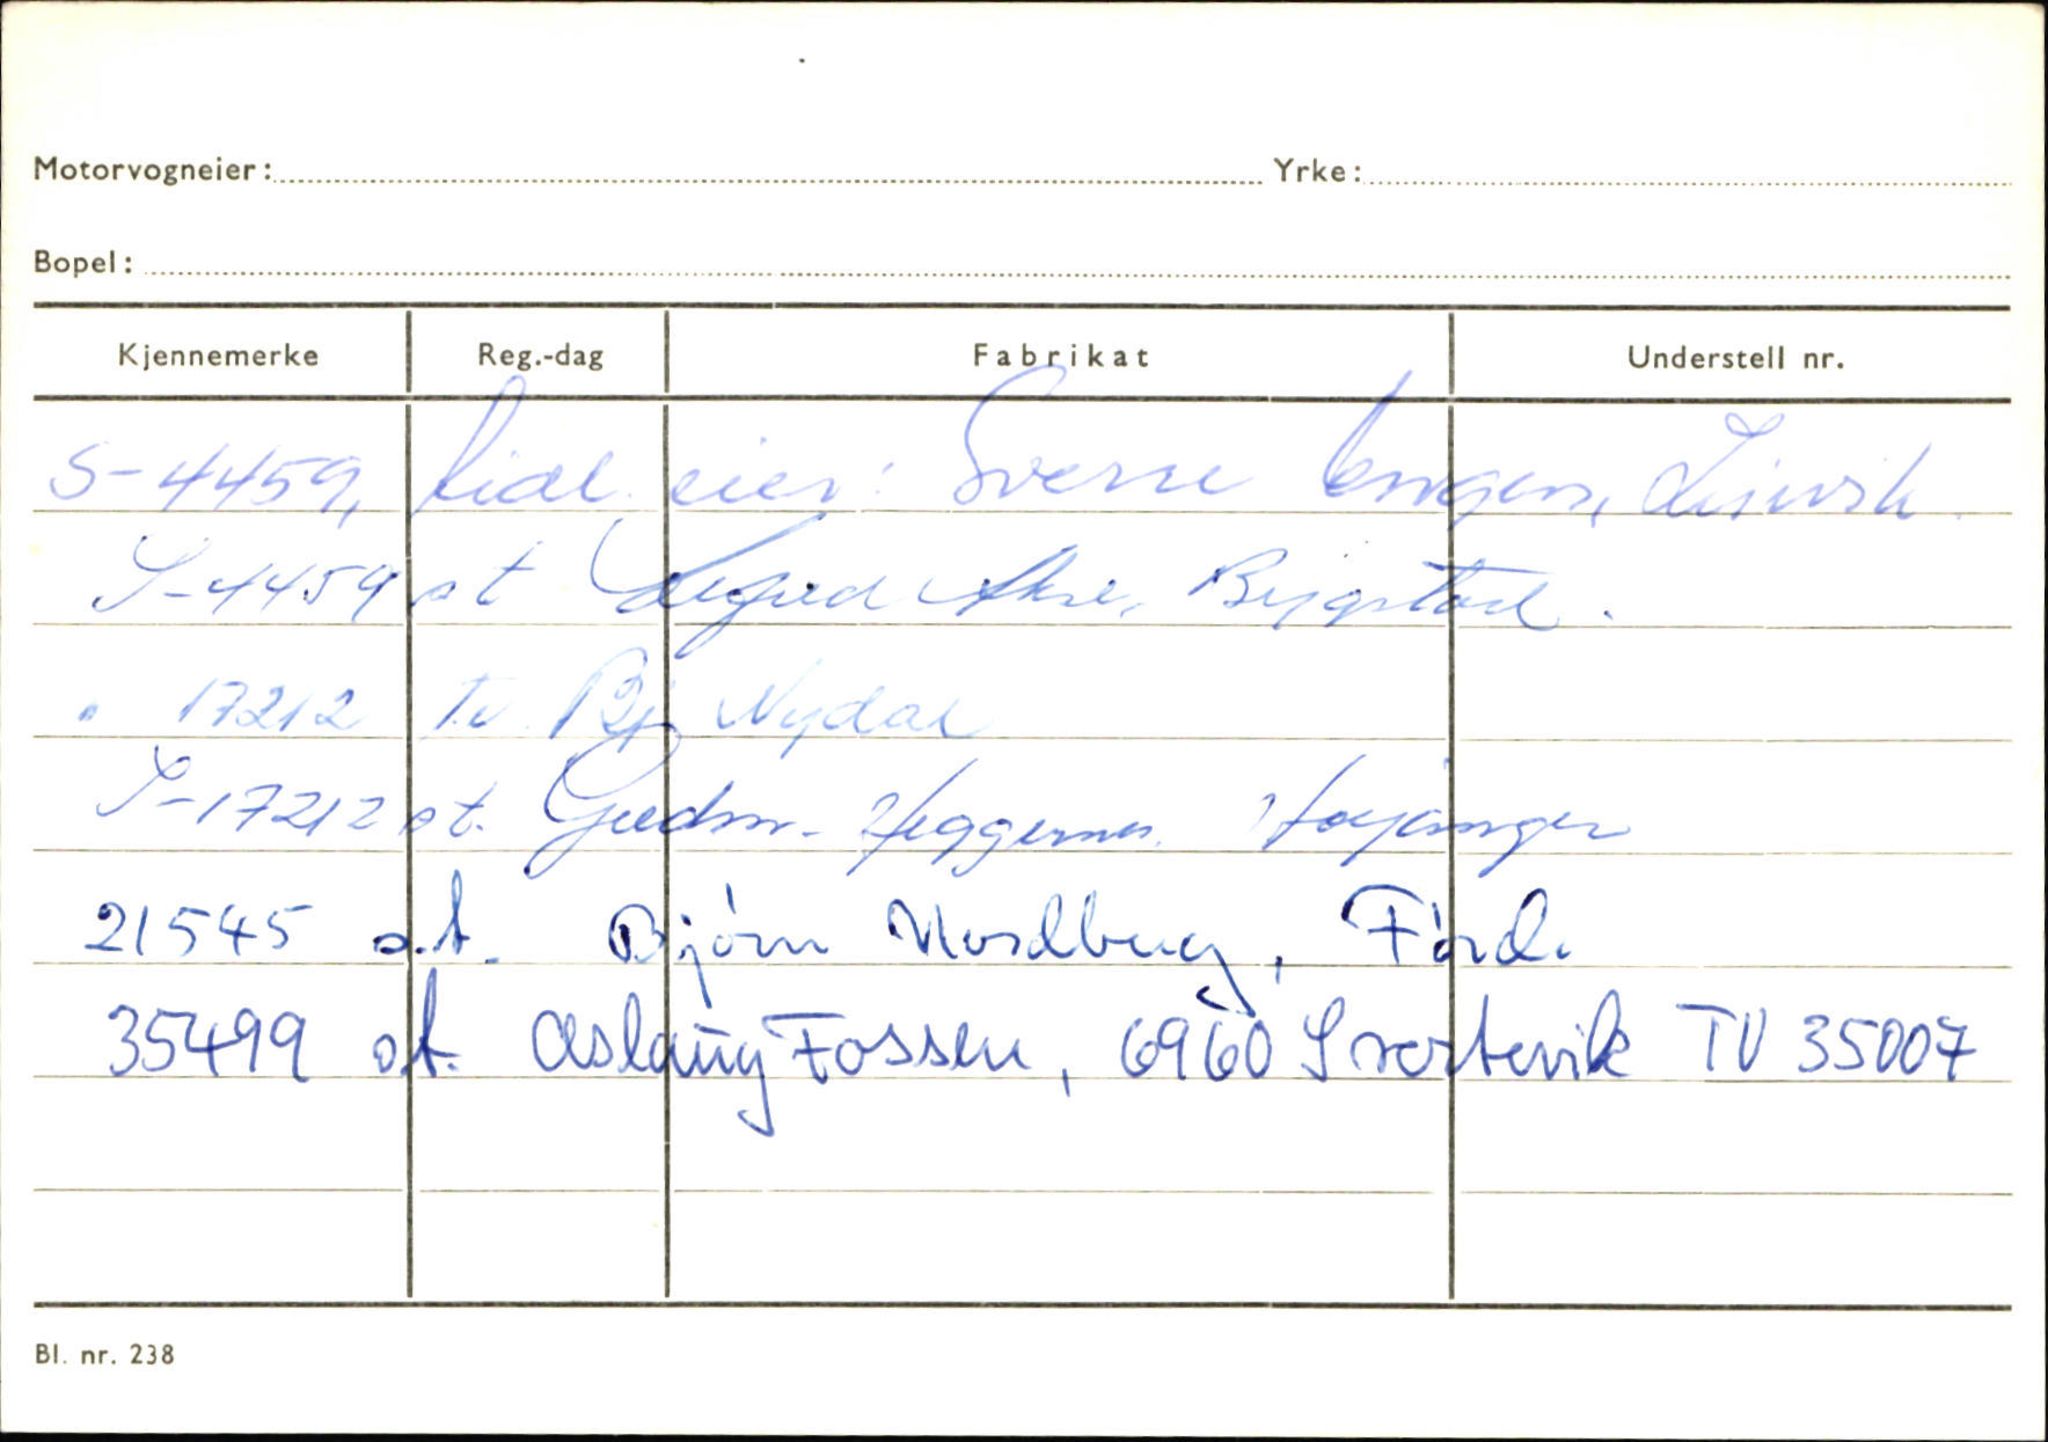 Motorvogneier: Yrke:
Bopel:
Kjennemerke Reg.-dag Fabrikat Understell nr.
S-4459, tidl. eier: Sverre Longen,
S-4459 st Bygstad.
" 17212 Tv. Bj Nydal
S-17212 st. Gudm. Heggernes. Høyanger
21545 o.t. Bjørn Nordberg, Førde
35499 o.t. Aslaug Fossen, 6960 Svortevik TV 35007
Bl. nr. 238